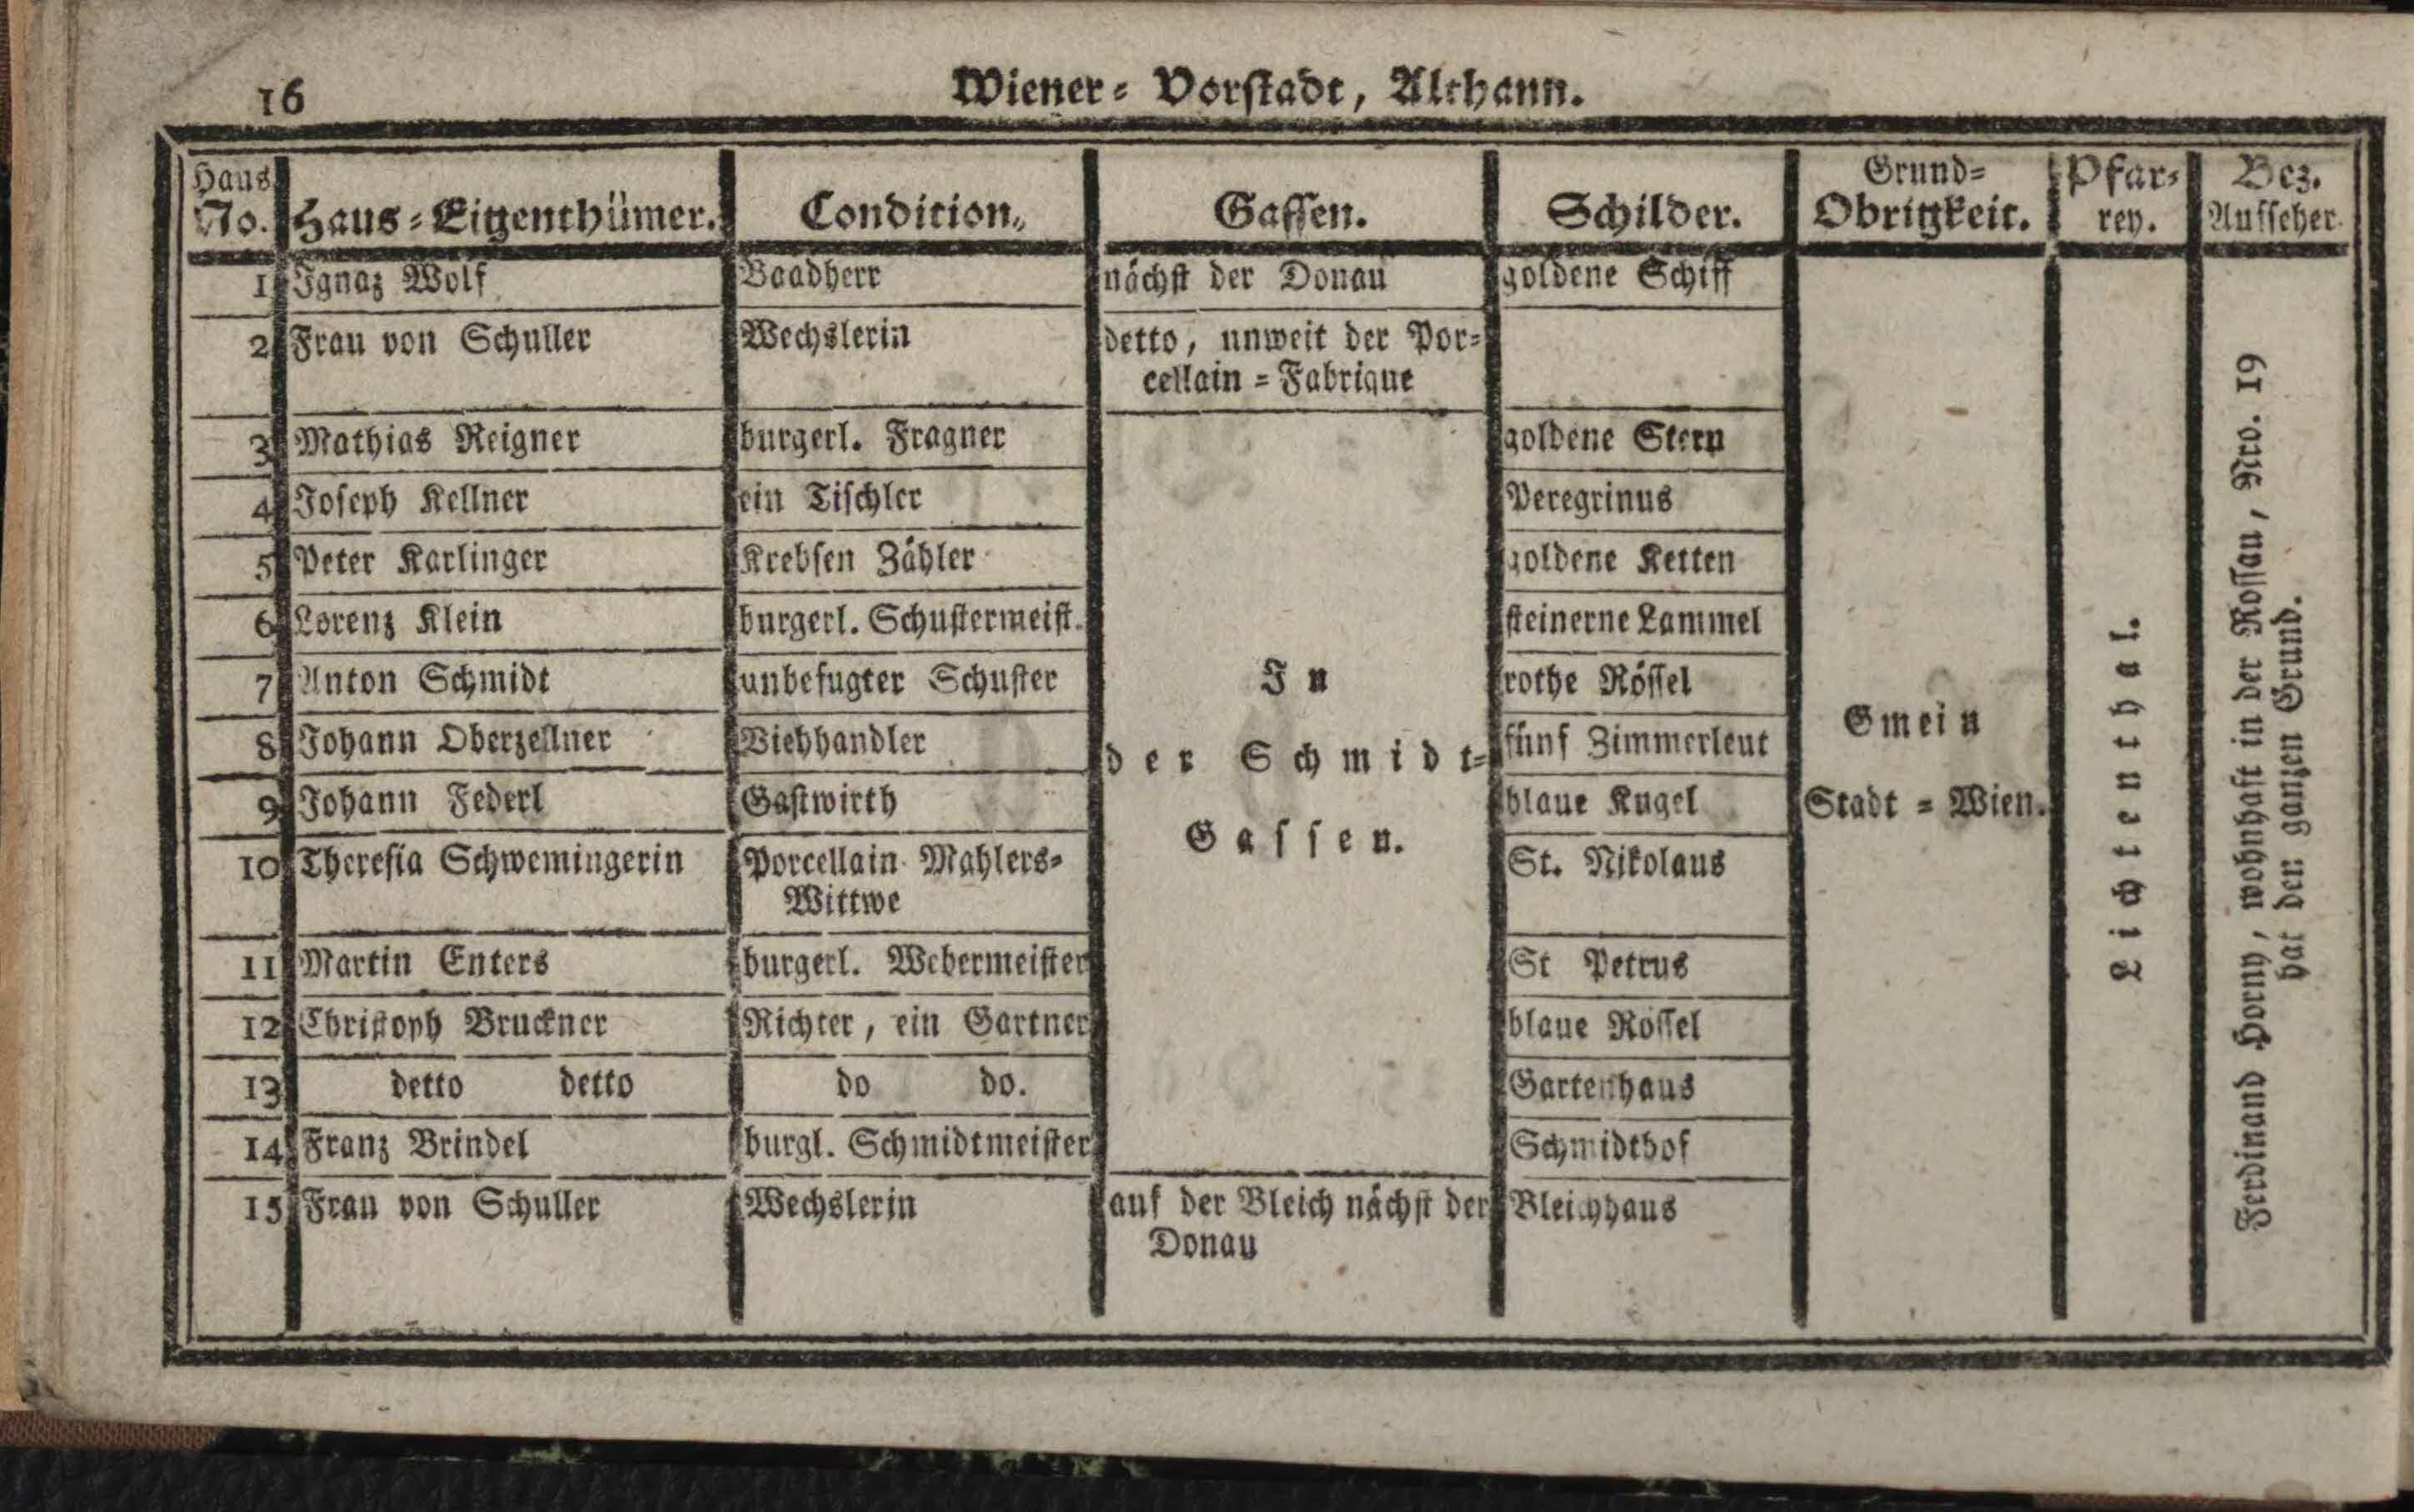 16
Wiener= Vorstadt, Althann.
Haus No. Haus=Eigenthümer. Condition. Gassen. Schilder. Grund= Obrigkeit. Pfar= rey. Bez. Aufseher.
1 Ignaz Wolf Baadherr nächst der Donau goldene Schiff
2 Frau von Schuller Wechslerin detto, unweit der Por=
cellain = Fabrique
3 Mathias Reigner burgerl. Fragner goldene Stern
4 Joseph Kellner ein Tischler Peregrinus
5 Peter Karlinger Krebsen Zähler goldene Ketten
6 Lorenz Klein burgerl. Schustermeist. steinerne Lammel
7 Anton Schmidt unbefugter Schuster rothe Rössel
8 Johann Oberzellner Viehhandler fünf Zimmerleut
9 Johann Federl Gastwirth blaue Kugel
10 Theresia Schwemingerin Porcellain Mahlers=
Wittwe St. Nikolaus
11 Martin Enters burgerl. Webermeister St Petrus
12 Christoph Bruckner Richter, ein Gartner blaue Rössel
13 detto detto do do. Gartenhaus
14 Franz Brindel burgl. Schmidtmeister Schmidthof
15 Frau von Schuller Wechslerin auf der Bleich nächst der
Donau Bleichhaus
In
der Schmidt=
Gassen.
Gmein
Stadt = Wien.
Lichtenthal.
Ferdinand Horny, wohnhaft in der Rossau, Nro. 19
hat den ganzen Grund.